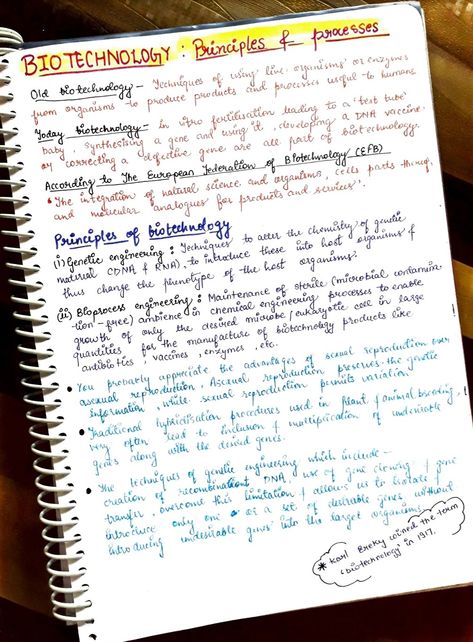 BIOTECHNOLOGY : Principles & processes
Old biotechnology - Techniques of using live organisms or enzymes
from organisms to produce products and processes useful to humans.
Today biotechnology - In vitro fertilisation leading to a 'test tube'
baby, synthesising a gene and using it, developing a DNA vaccine
or correcting a defective gene are all part of biotechnology.
According to The European Federation of Biotechnology (EFB)
"The integration of natural science and organisms, cells parts thereof,
and molecular analogues for products and services".
Principles of biotechnology
(i) Genetic engineering : Techniques to alter the chemistry of genetic
material (DNA & RNA) to introduce these into host organisms &
thus change the phenotype of the host organisms.
(ii) Bioprocess engineering : Maintenance of sterile (microbial contamina-
-tion-free) ambience in chemical engineering processes to enable
growth of only the desired microbe/eukaryotic cell in large
quantities for the manufacture of biotechnology products like
antibiotics, vaccines, enzymes, etc.
• You probably appreciate the advantages of sexual reproduction over
asexual reproduction. Asexual reproduction preserves the genetic
information, while sexual reproduction permits variation.
• Traditional hybridisation procedures used in plant & animal breeding,
very often lead to inclusion & multiplication of undesirable
genes along with the desired genes.
• The techniques of genetic engineering which include -
creation of recombinant DNA, use of gene cloning & gene
transfer, overcome this limitation & allows us to isolate &
introduce only one or a set of desirable genes without
introducing undesirable genes into the target organisms.
* Karl Ereky coined the term
'biotechnology' in 1917.